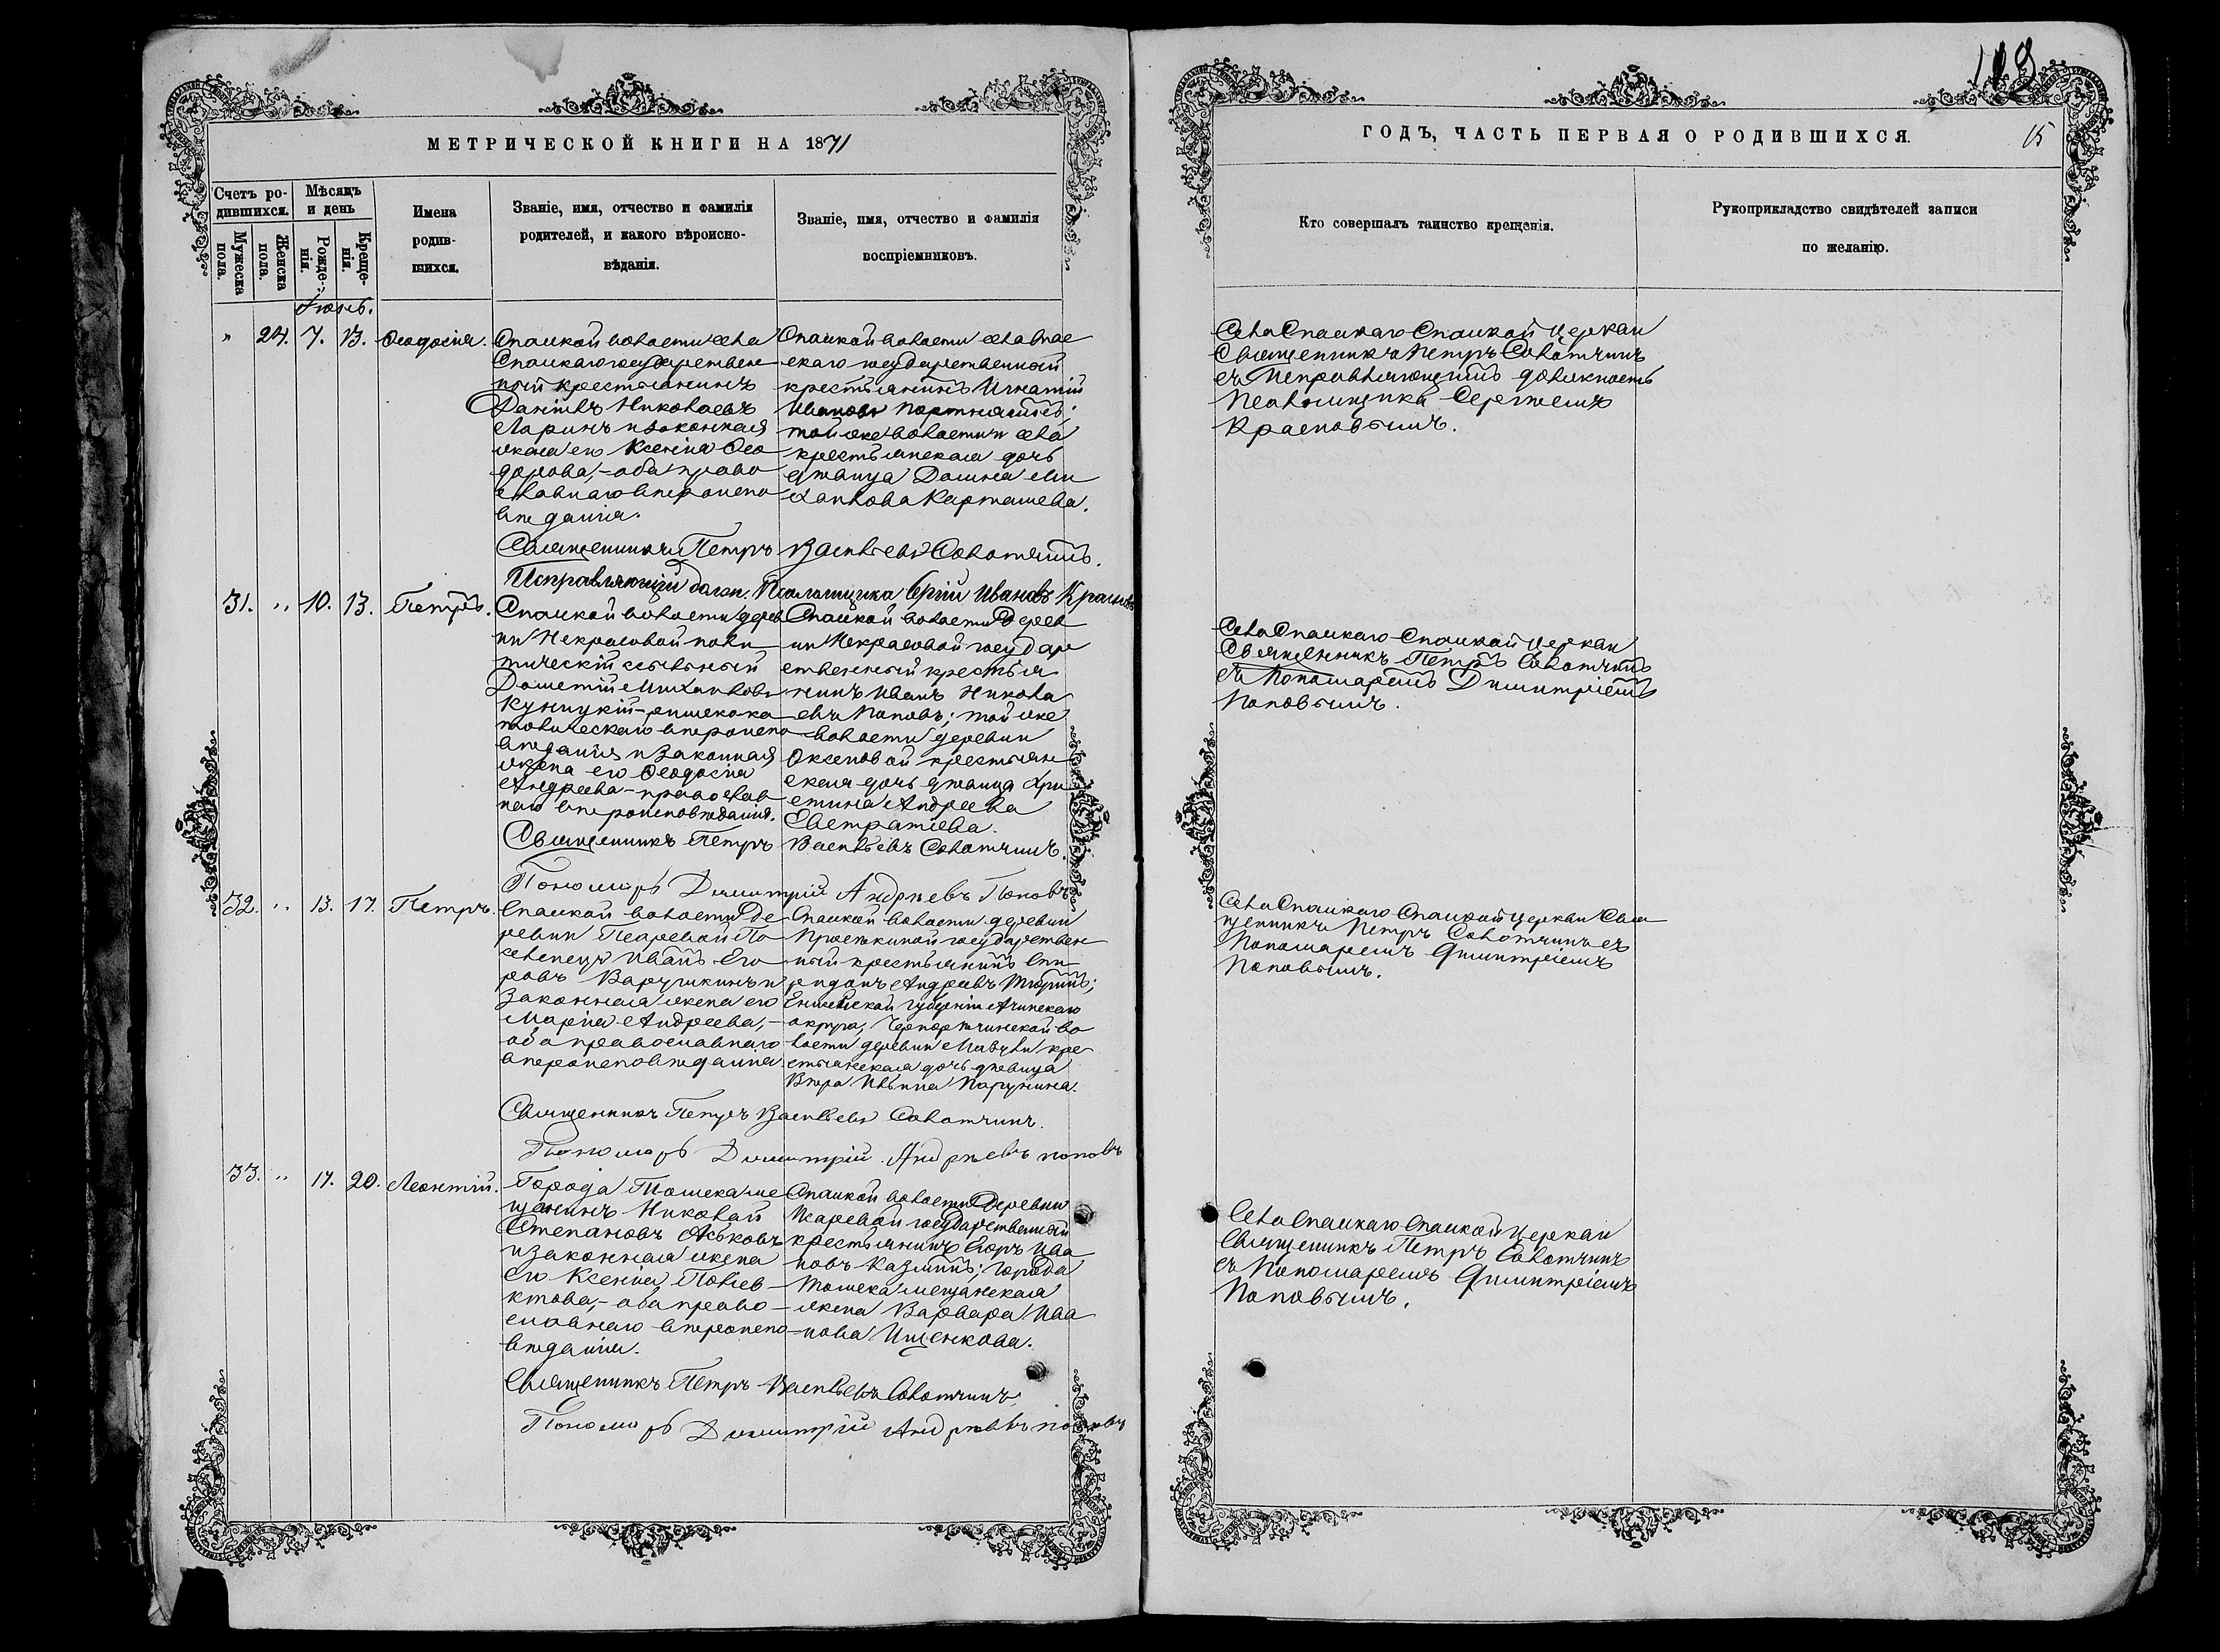 МЕТРИЧЕСКОЙ КНИГИ НА 1871
Счетъ ро-
дившихся.
Мужеска
пола.
Женска
пола.
Мѣсяцъ
и день
Рожде-
нія.
Креще-
нія.
Имена
родив-
шихся.
Званіе, имя, отчество и фамилія
родителей, и какого вѣроиспо-
вѣданія.
Званіе, имя, отчество и фамилія
воспріемниковъ.
" 24. 7. 13. Ѳеодосія.
Спаской волости села
Спаскаго государствен
ный крестьянинъ
Даніилъ Николаевъ
Ларинъ и законная
жена его Ксенія Ѳео
дорова, - оба право
славнаго вѣроиспо
вѣданія.
Спаской волости села Спас
скаго государственный
крестьянинъ Игнатій
Ивановъ Портнягинъ;
той же волости и села
крестьянская дочь
дѣвица Домна Ми
хаилова Карташева.
Священникъ Петръ Васильевъ Соловчинъ.
Исправляющій долж. Псаломщика Сергій Ивановъ Красновъ
31. " 10. 13. Петръ.
Спаской волости дерев
ни Некрасовой поли
тическій ссыльный
Дометій Михаиловъ
Куницкій - римскока
толическаго вѣроиспо
вѣданія и законная
жена его Ѳеодосія
Андреева - православ
наго вѣроисповѣданія.
Спаской волости Дерев
ни Некрасовой государ
ственный крестья
нинъ Иванъ Никола
евъ Поповъ; той же
волости деревни
Аксеновой крестьян
ская дочь дѣвица Хри
стина Андреева
Евстратіева.
Священникъ Петръ Васильевъ Соловчинъ.
Пономарь Димитрій Андреевъ Поповъ
32. " 13. 17. Петръ.
Спаской волости Де
ревни Писаревой По
селенецъ Иванъ Его
ровъ Варушкинъ и
законная жена его
Марія Андреева, -
оба православнаго
вѣроисповѣданія.
Спаской волости деревни
государствен
ный крестьянинъ Спи
ридонъ Андреевъ Тюринъ;
Енисейской губерніи Ачинскаго
округа, Чернорѣчинской во
лости деревни кре
стьянская дочь дѣвица
Вѣра Ильина Парунина.
Священникъ Петръ Васильевъ Соловчинъ.
Пономарь Димитрій Андреевъ поповъ
33. " 17. 20. Леонтій.
Города Томска ме
щанинъ Николай
Степановъ Аськовъ
и законная жена
его Ксенія Полієв
ктова, - оба право
славнаго вѣроиспо
вѣданія.
Спаской волости Деревни
Писаревой государственный
крестьянинъ Егоръ Ива
новъ Казминъ; города
Томска мещанская
жена Варвара Ива
нова Ищенкова.
Священникъ Петръ Васильевъ Соловчинъ.
Пономарь Димитрій Андреевъ поповъ
15
ГОДЪ, ЧАСТЬ ПЕРВАЯ О РОДИВШИХСЯ.
Кто совершалъ таинство крещенія.
Рукоприкладство свидѣтелей записи
по желанію.
Села Спаскаго Спаской Церкви
Священникъ Петръ Соловчинъ
съ Исправляющимъ должность
Псаломщика Сергіемъ
Красновымъ.
Села Спаскаго Спаской церкви
Священникъ Петръ Соловчинъ
съ Пономаремъ Димитріемъ
Поповымъ.
Села Спаскаго Спаской церкви Свя
щенникъ Петръ Соловчинъ съ
Пономаремъ Димитріемъ
Поповымъ.
Села Спаскаго Спаской Церкви
Священникъ Петръ Соловчинъ
съ Пономаремъ Димитріемъ
Поповымъ.